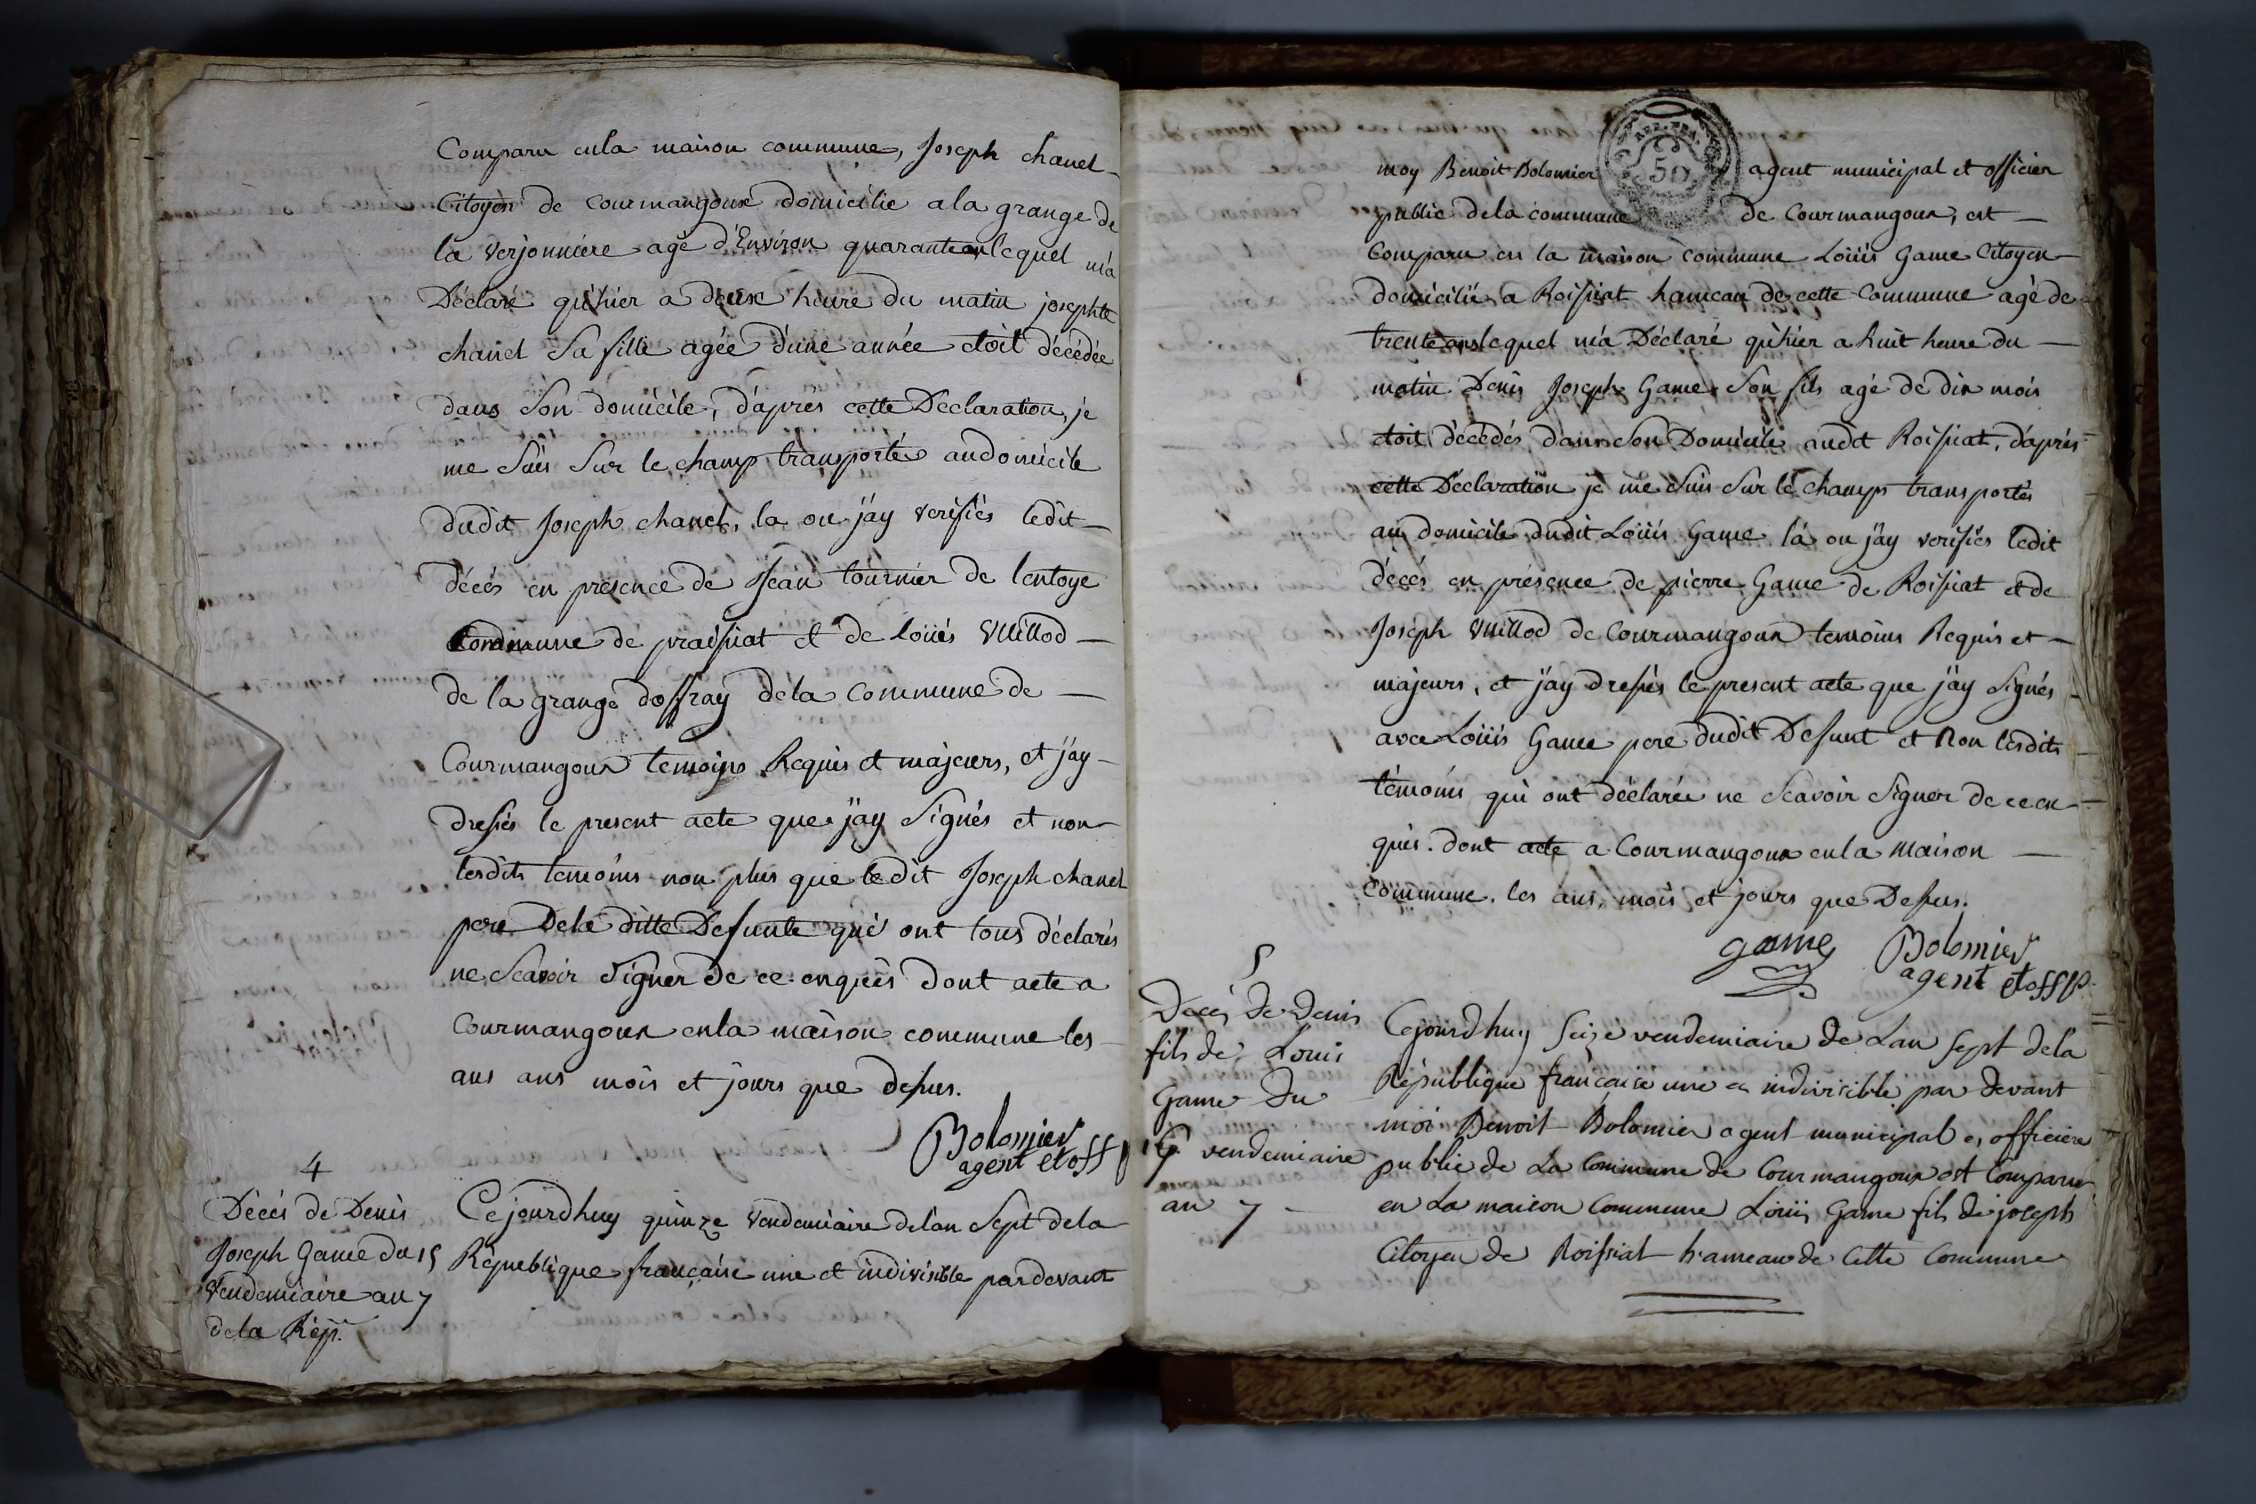 Comparu en la maison commune, Joseph chanel
Citoyen de courmangoux domicilié a la grange de
la verjonniére agé d'Environ quarante ans lequel m'a
Déclaré qu'hier a deuxe heure du matin josephte
chanel Sa fille agée d'une année etoit décédée
dans Son domicile, d'aprés cette Declaration, je
me Suis Sur le champ transportés au domicile
dudit Joseph chanel, la ou j'ay verifiés ledit
décés en presence de Jean tournier de lentoye
Commune de praissiat et de loüis Vuillod
de la grange doffray de la commune de
Courmangoux temoins Requis et majeurs, et j'ay
dressés le present acte que j'ay Signés et non
lesdits temoins non plus que ledit Joseph chanel
pere De la ditte Defunte qui ont tous déclarés
ne Scavoir Signer de ce enquis dont acte a
courmangoux en la maison commune les
ans ans mois et jours que dessus.
Bolomier
agent et off p
4
Décés de Denis
Joseph Game du 15
Vendemiaire an 7
de la Rép.
Ce jourdhuy quinze Vendemiaire de lan Sept de la
République française une et indivisible par devant
REP. FRA.
50
moy Benoit Bolomier agent municipal et officier
public de la commune de Courmangoux, est
Comparu en la maison commune Loüis Game Citoyen
domicilié a Roissiat hameau de cette commune agé de
trente ans lequel m'a Déclaré qu'hier a huit heure du
matin Denis Joseph Game Son fils agé de dix mois
etoit décédés dans Son Domicile audit Roissiat, d'aprés
cette Déclaration je me Suis Sur le champs transportés
au domicile dudit Loüis Game là ou j'ay verifiés ledit
décés en présence de pierre Game de Roissiat et de
Joseph Vuillod de Courmangoux temoins Requis et
majeurs, et j'ay dressés le present acte que j'ay Signés
avec Loüis Game pere dudit Defunt et Non lesdits
témoins qui ont déclarée ne Scavoir Signer de ce en
quis. dont acte a Courmangoux en la Maison
Commune. les ans, mois et jours que Dessus.
game Bolomier
agent et off p.
5
Decés de Denis
fils de Louis
Game du
16 vendemiaire
an 7
Cejourdhuy Seize vendemiaire de Lan sept de la
République française une et indivisible par devant
moi Benoit Bolomier agent municipal et officiere
public de La Commune de Courmangoux est Comparu
en La maison Commune Loüis Game fils de joseph
Citoyen de Roissiat hameau de Cette Commune